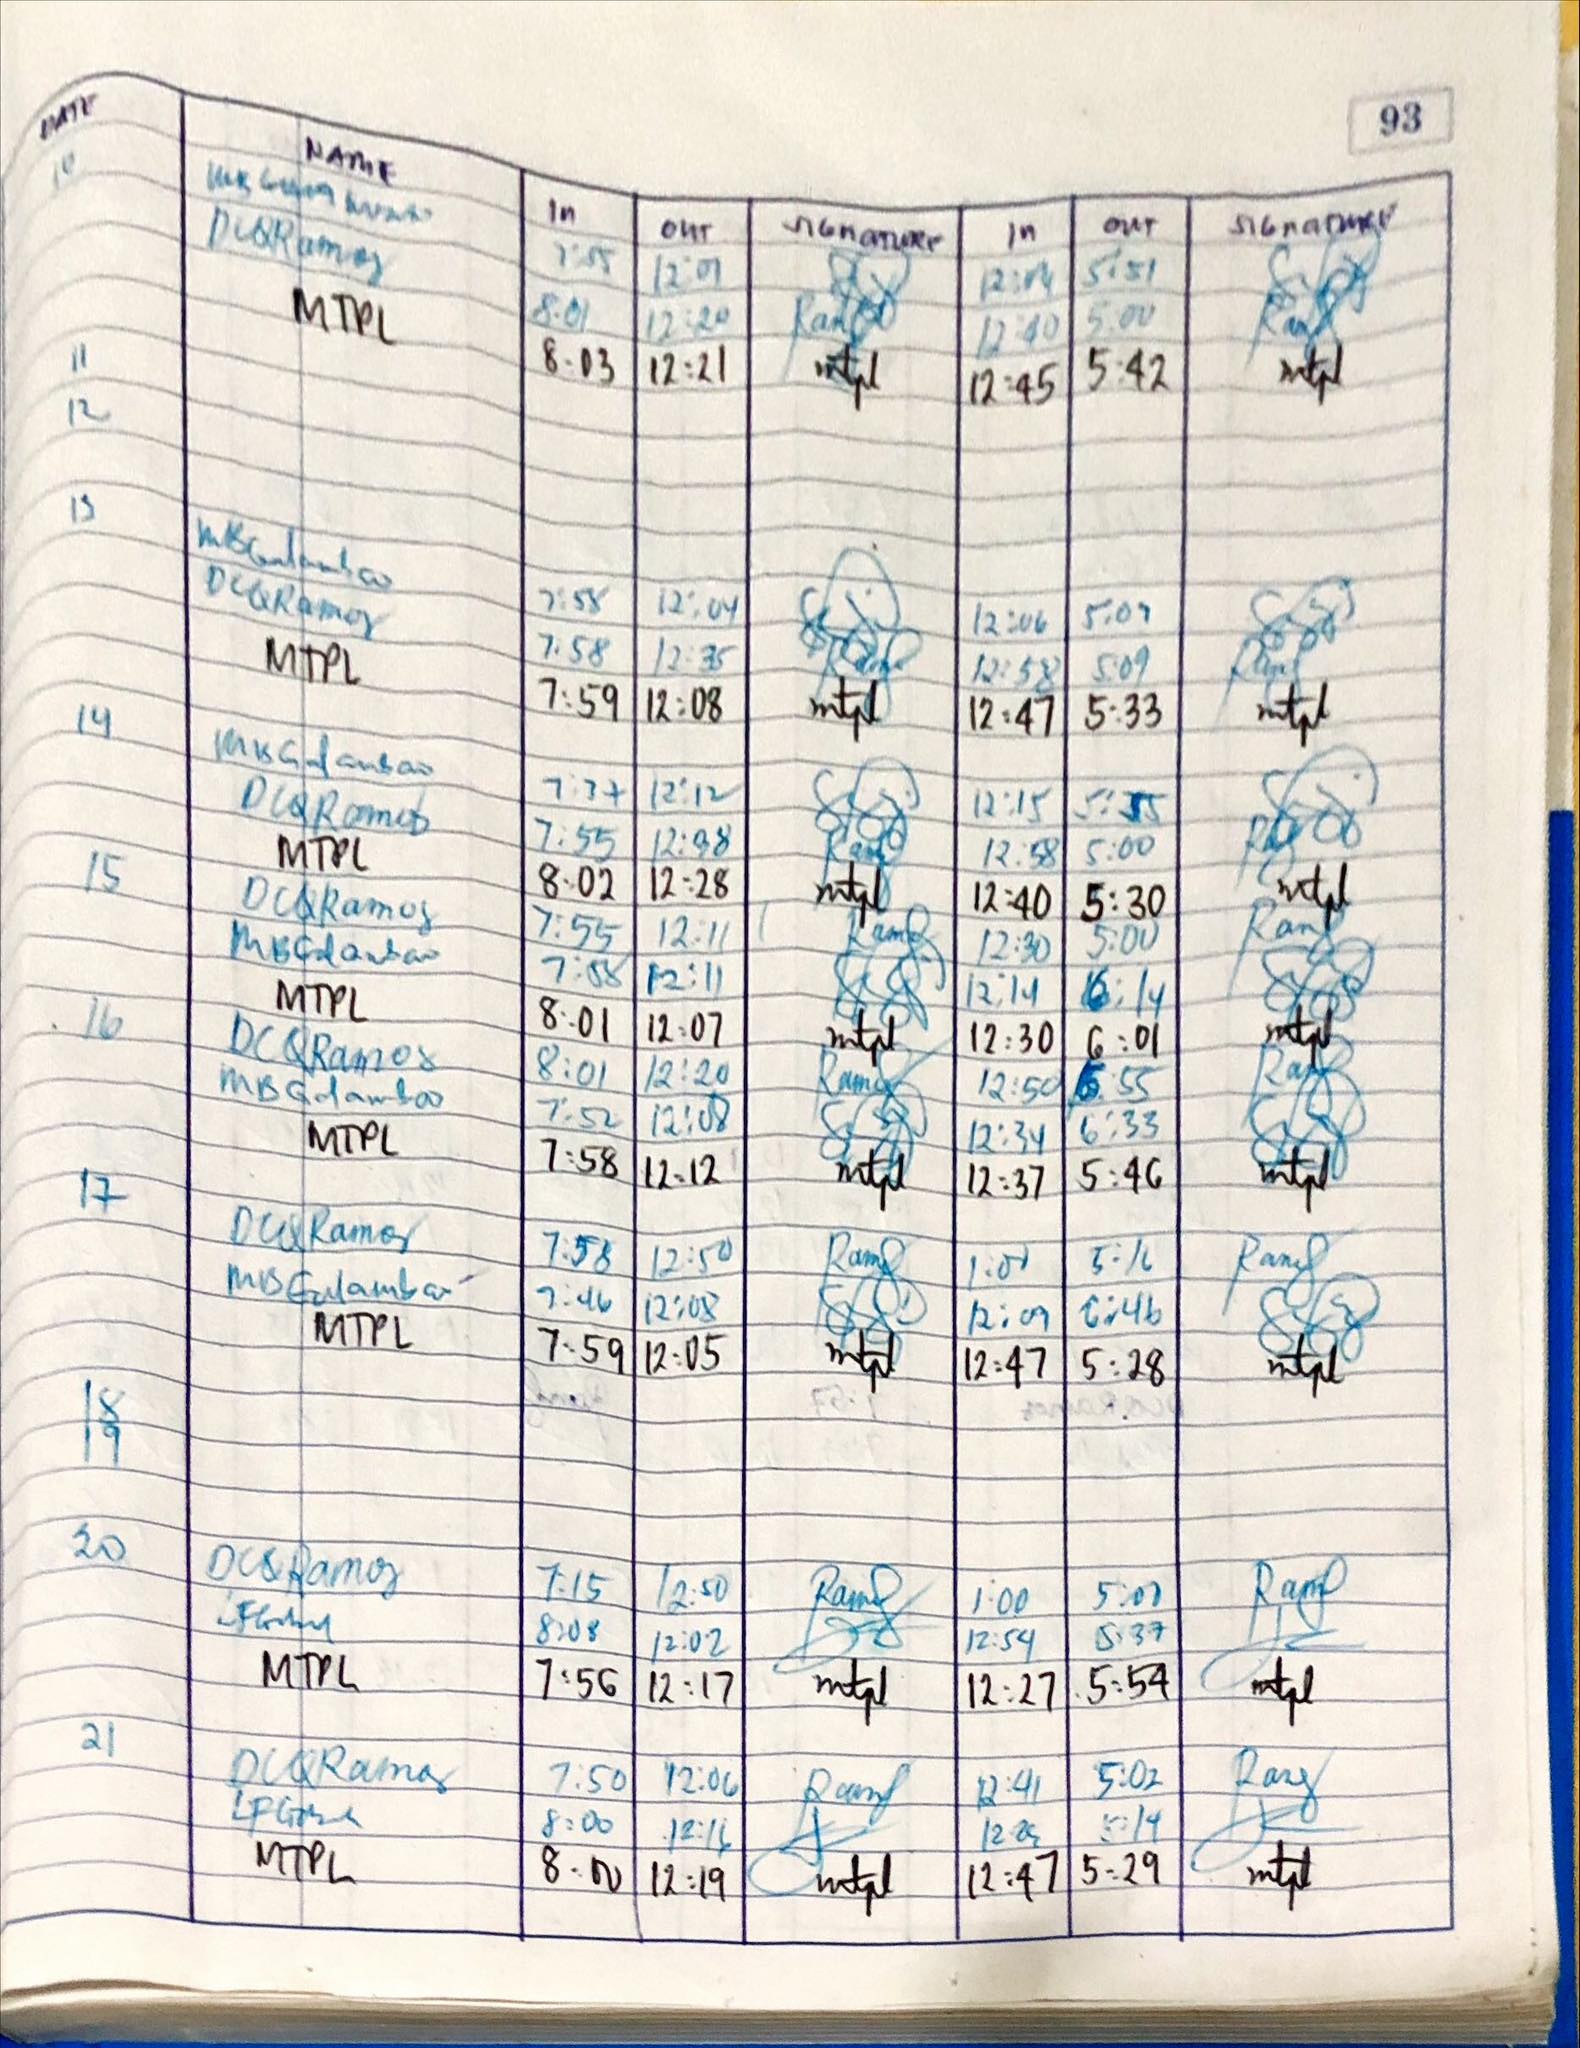 93
DATE NAME IN OUT SIGNATURE IN OUT SIGNATURE
10 7:55 12:01 12:04 5:51
DCQRamos 8:01 12:20 Ramos 12:40 5:00 Ramos
MTPL 8:03 12:21 mtpl 12:45 5:42 mtpl
11
12
13
MBGulambao 7:58 12:04 12:06 5:07
DCQRamos 7:58 12:35 Ramos 12:58 5:09 Ramos
MTPL 7:59 12:08 mtpl 12:47 5:33 mtpl
14
MBGulambao 7:37 12:12 12:15 5:35
DCQRamos 7:55 12:38 Ramos 12:58 5:00
MTPL 8:02 12:28 mtpl 12:40 5:30 mtpl
15 DCQRamos 7:55 12:11 Ramos 12:30 5:00 Ramos
MBGulambao 7:58 12:11 12:14 6:14
MTPL 8:01 12:07 mtpl 12:30 6:01 mtpl
16 DCQRamos 8:01 12:20 Ramos 12:50 5:55 Ramos
MBGulambao 7:52 12:08 12:34 6:33
MTPL 7:58 12:12 mtpl 12:37 5:46 mtpl
17
DCQRamos 7:58 12:50 Ramos 1:01 5:16 Ramos
MBGulambao 7:46 12:08 12:09 6:46
MTPL 7:59 12:05 mtpl 12:47 5:28 mtpl
18
19
20 DCQRamos 7:15 12:50 Ramos 1:00 5:01 Ramos
8:08 12:02 12:54 5:37
MTPL 7:56 12:17 mtpl 12:27 5:54 mtpl
21
DCQRamos 7:50 12:06 Ramos 12:41 5:02 Ramos
8:00 12:16 5:14
MTPL 8:00 12:19 mtpl 12:47 5:29 mtpl